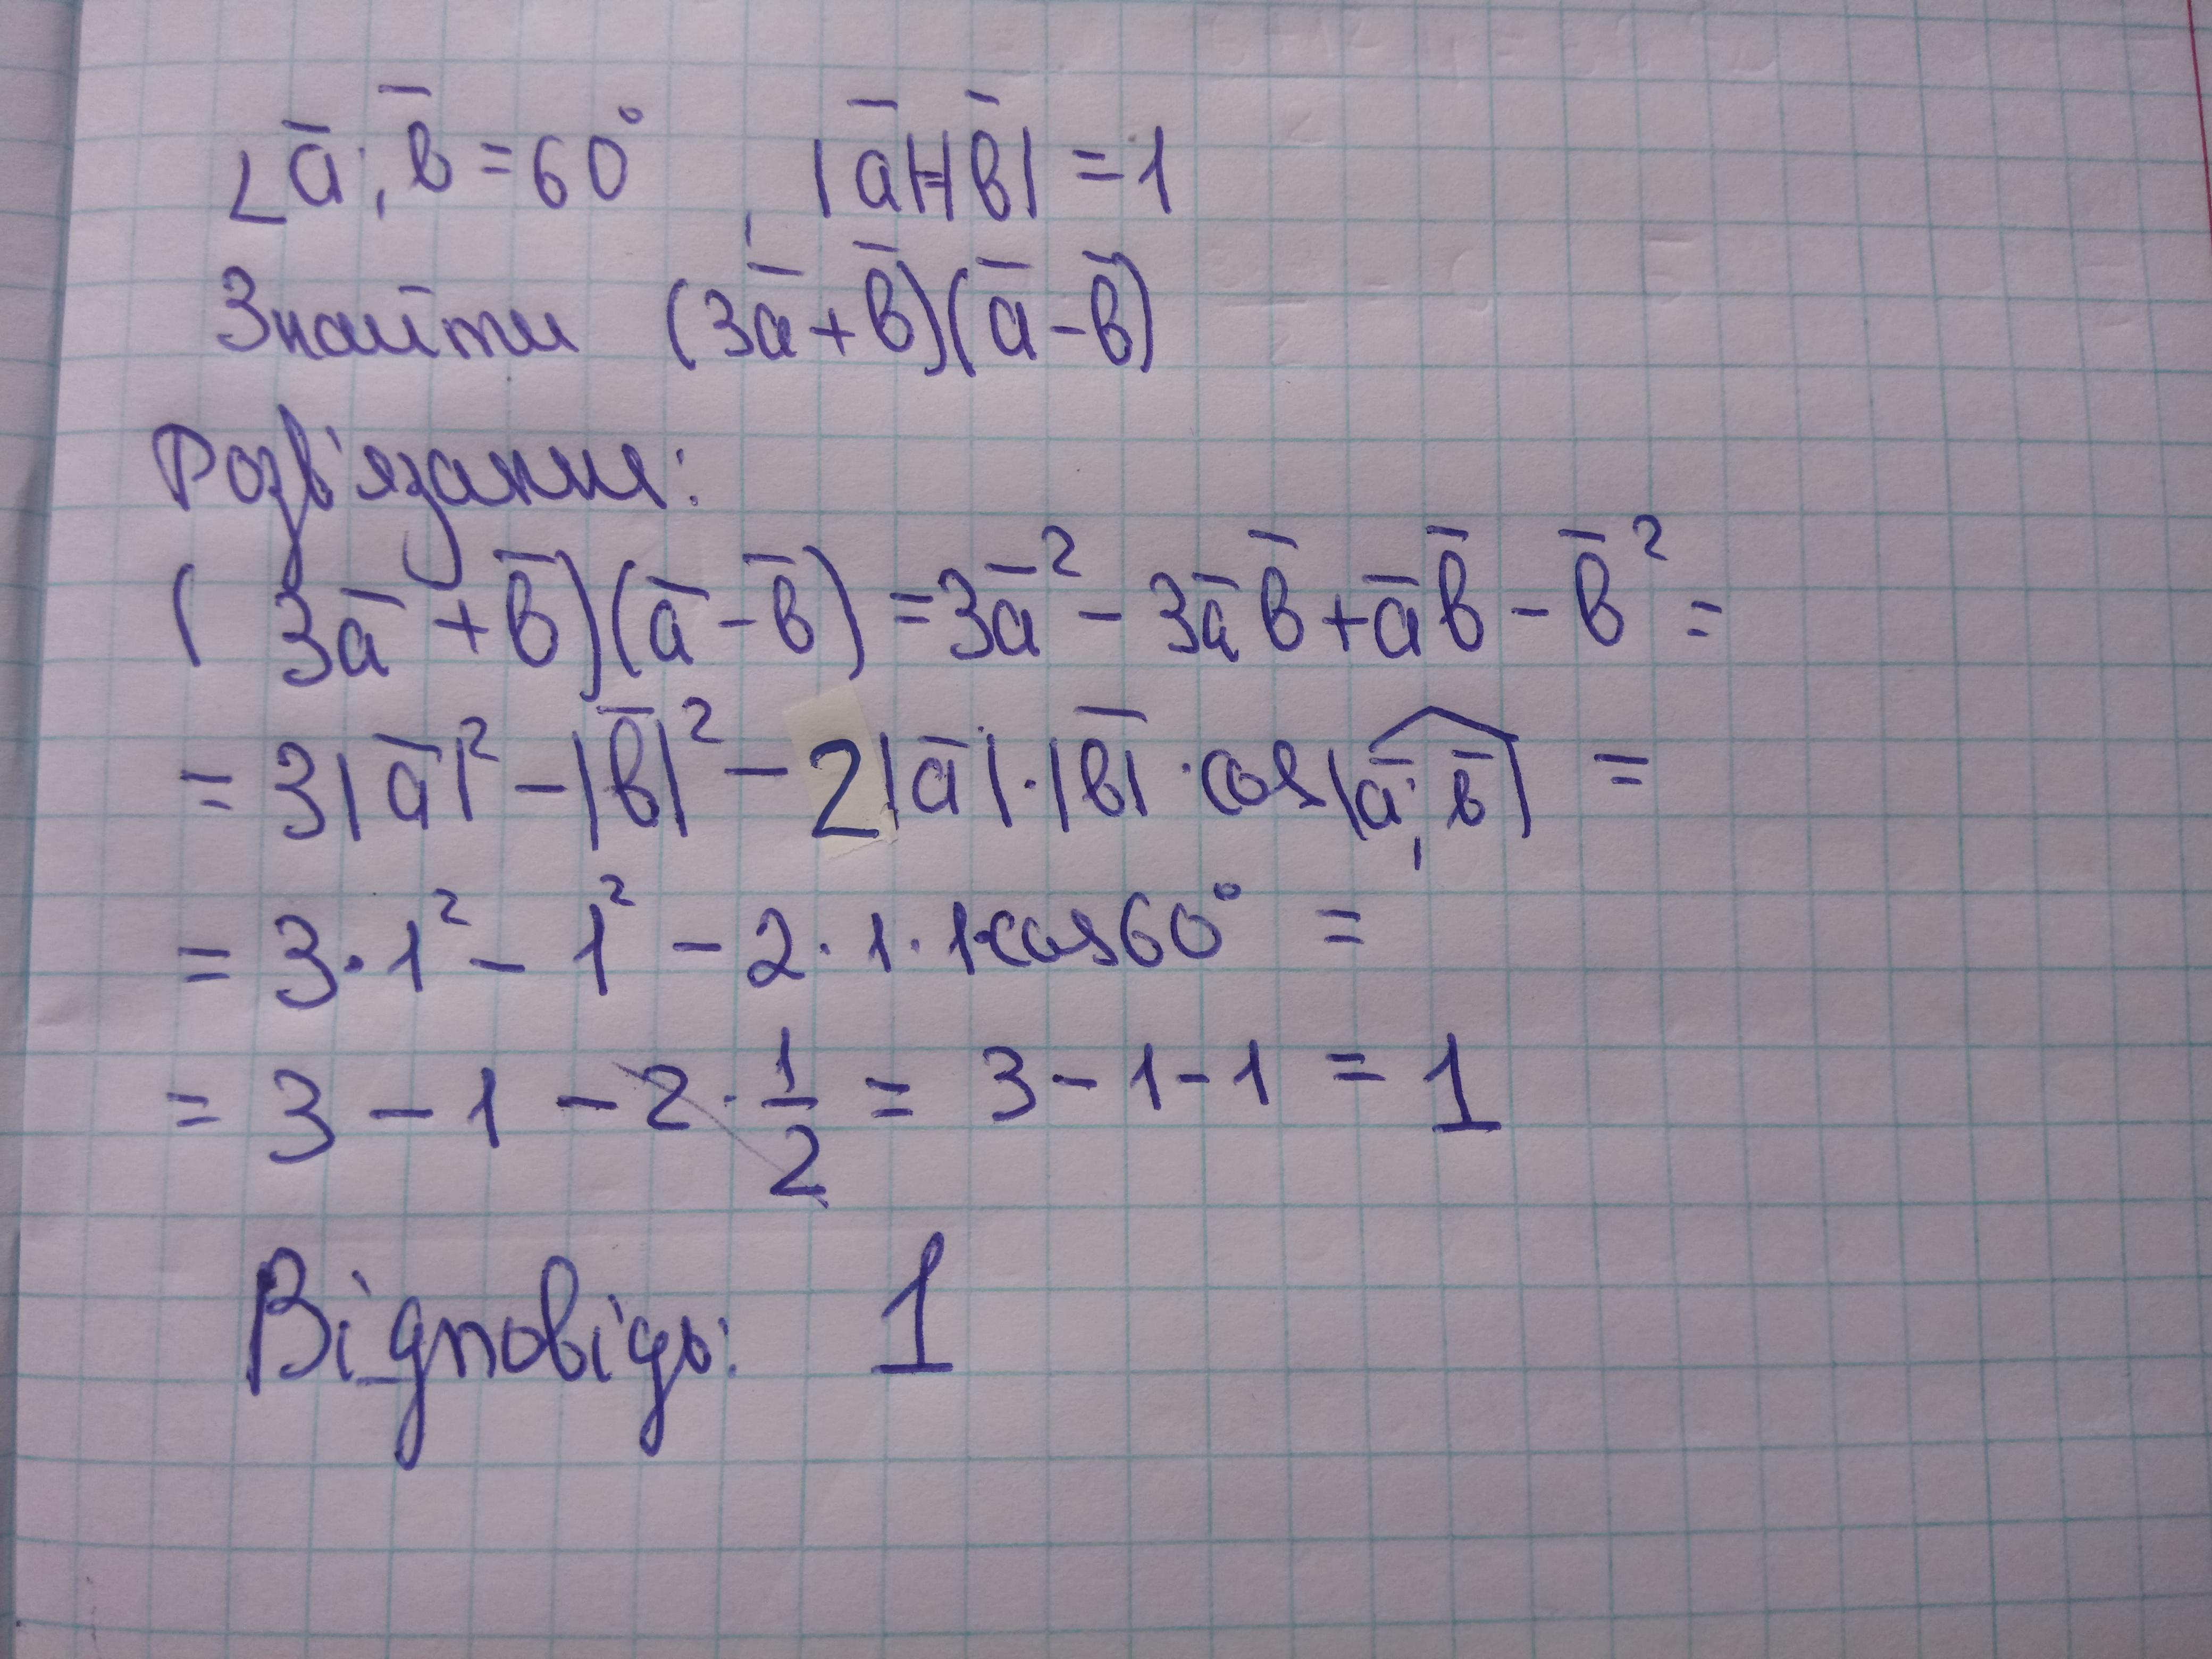 ∠a̅; b̅ = 60°, |a̅|=|b̅| = 1
Знайти (3a̅ + b̅)(a̅ - b̅)
Розв'язання:
(3a̅ + b̅)(a̅ - b̅) = 3a̅² - 3a̅b̅ + a̅b̅ - b̅² =
= 3|a̅|² - |b̅|² - 2|a̅|·|b̅|·cos(a̅; b̅) =
= 3·1² - 1² - 2·1·1·cos60° =
= 3 - 1 - 2·1/2 = 3 - 1 - 1 = 1
Відповідь: 1